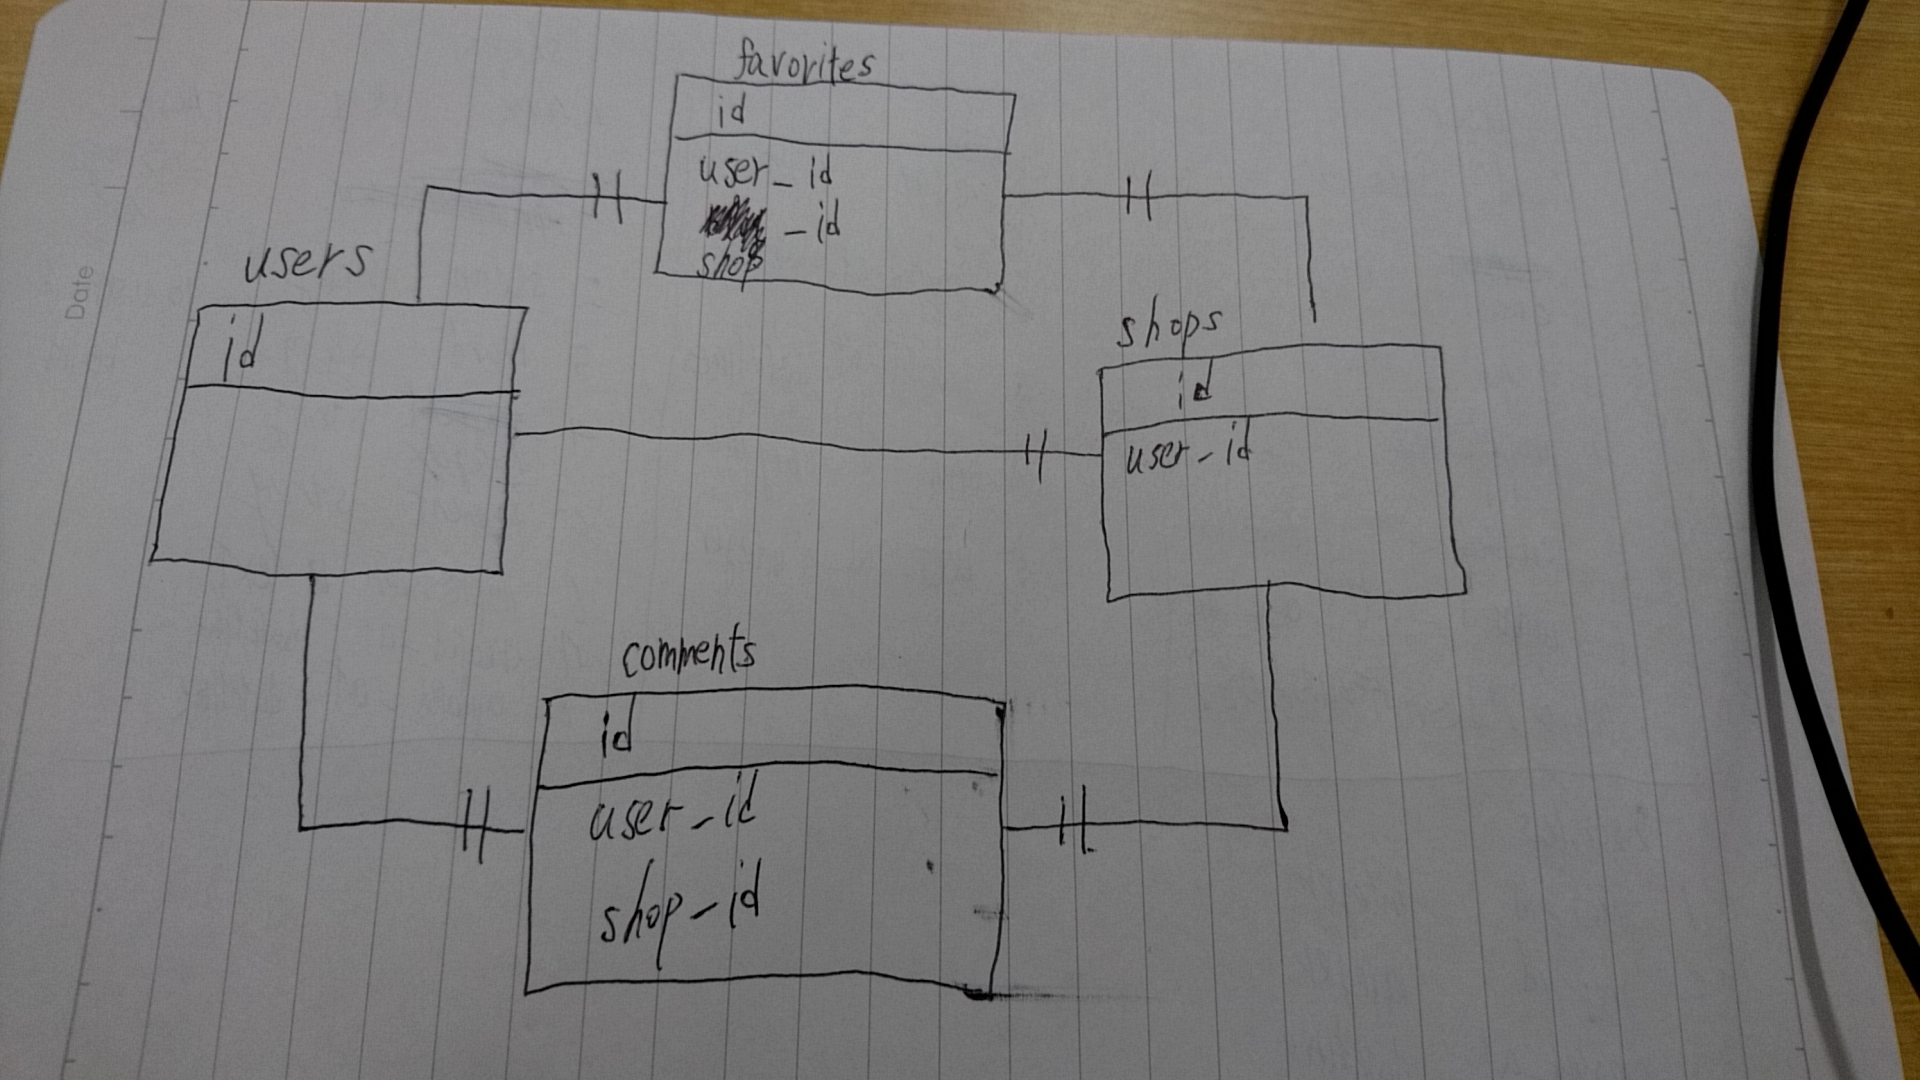 favorites
id
user_id
_id
shop
users
id
shops
id
user_id
comments
id
user_id
shop_id
Date